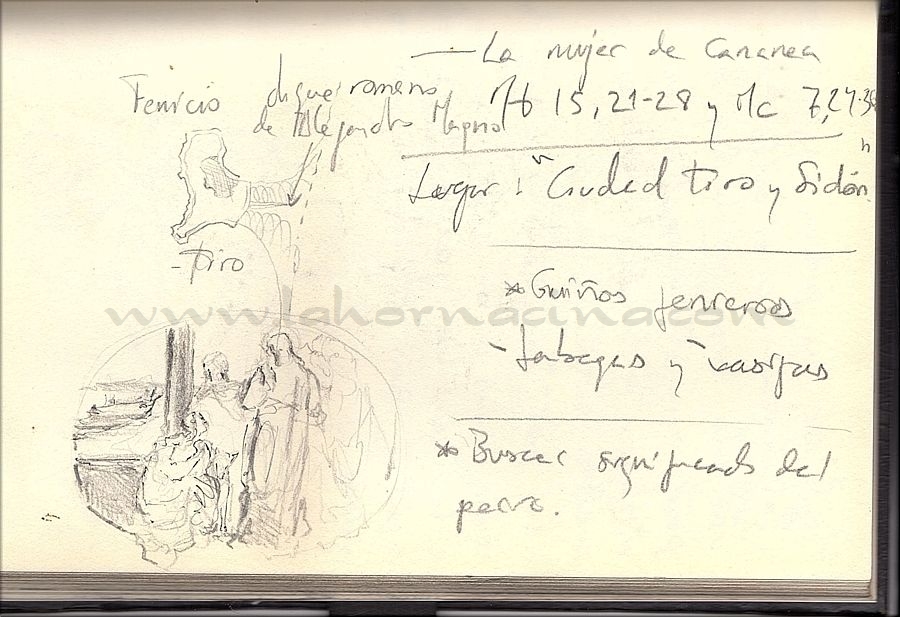 — La mujer de Cananea
Mt 15, 21-28 y Mc 7, 24-30
Fenicio
de Alejandro Magno
Lugar: "Ciudad Tiro y Sidón"
- Tiro
* Guiños fenicios
www.lahornacina.com
- y vasijas
* Buscar significado del
perro.